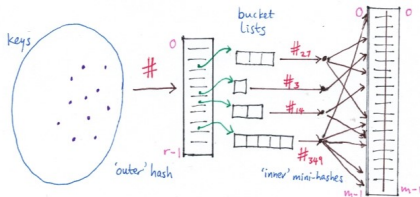 keys
#
0
r-1
'outer' hash
bucket
lists
#27
#3
#14
#349
'inner' mini-hashes
0
0
m-1
m-1